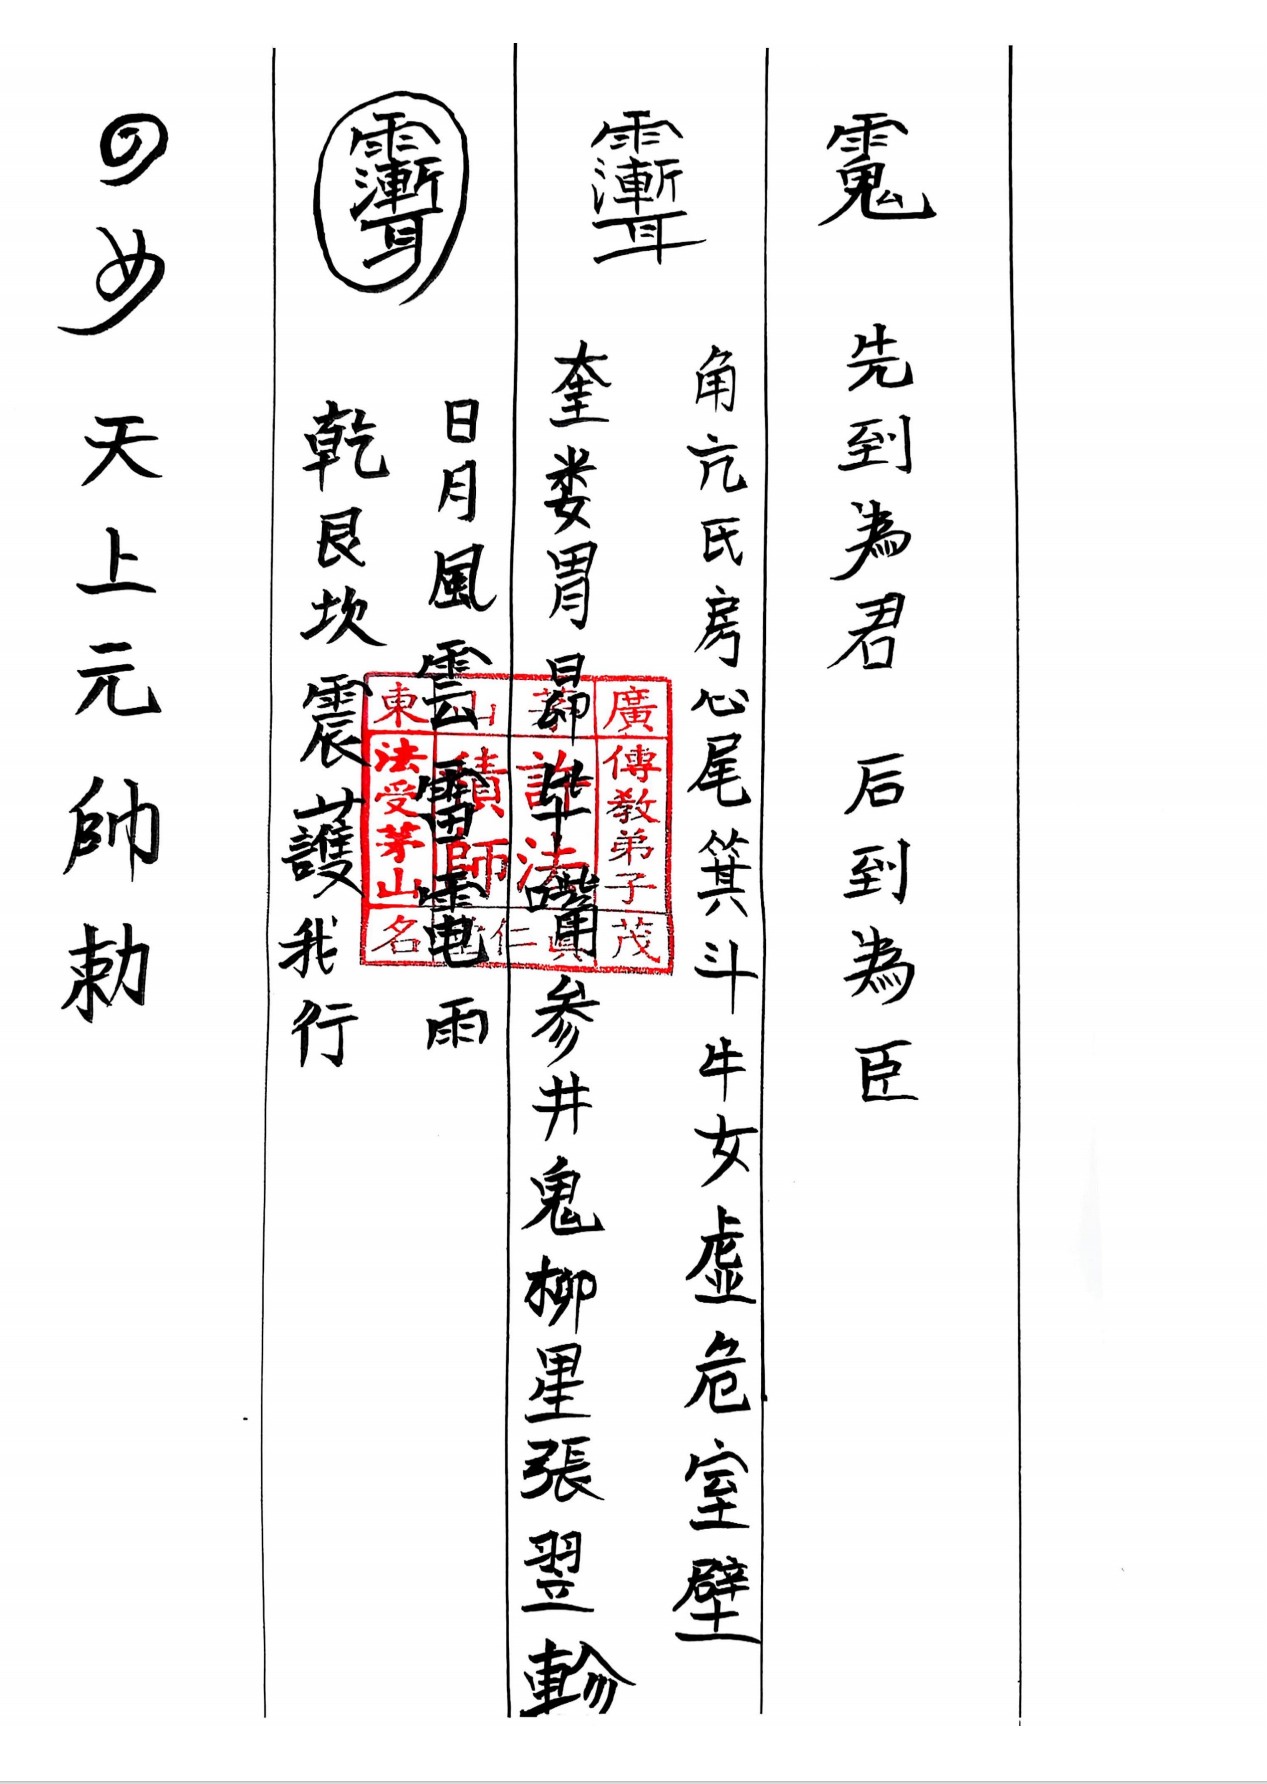 先到為君 后到為臣
角亢氏房心尾箕斗牛女虛危室壁
奎娄胃昴毕嘴参井鬼柳星張翌軫
日月風雲雷電雨
乾艮坎震護我行
天上元帥勅
廣傳教弟子茂
許法
山積師仁
東法受茅山名